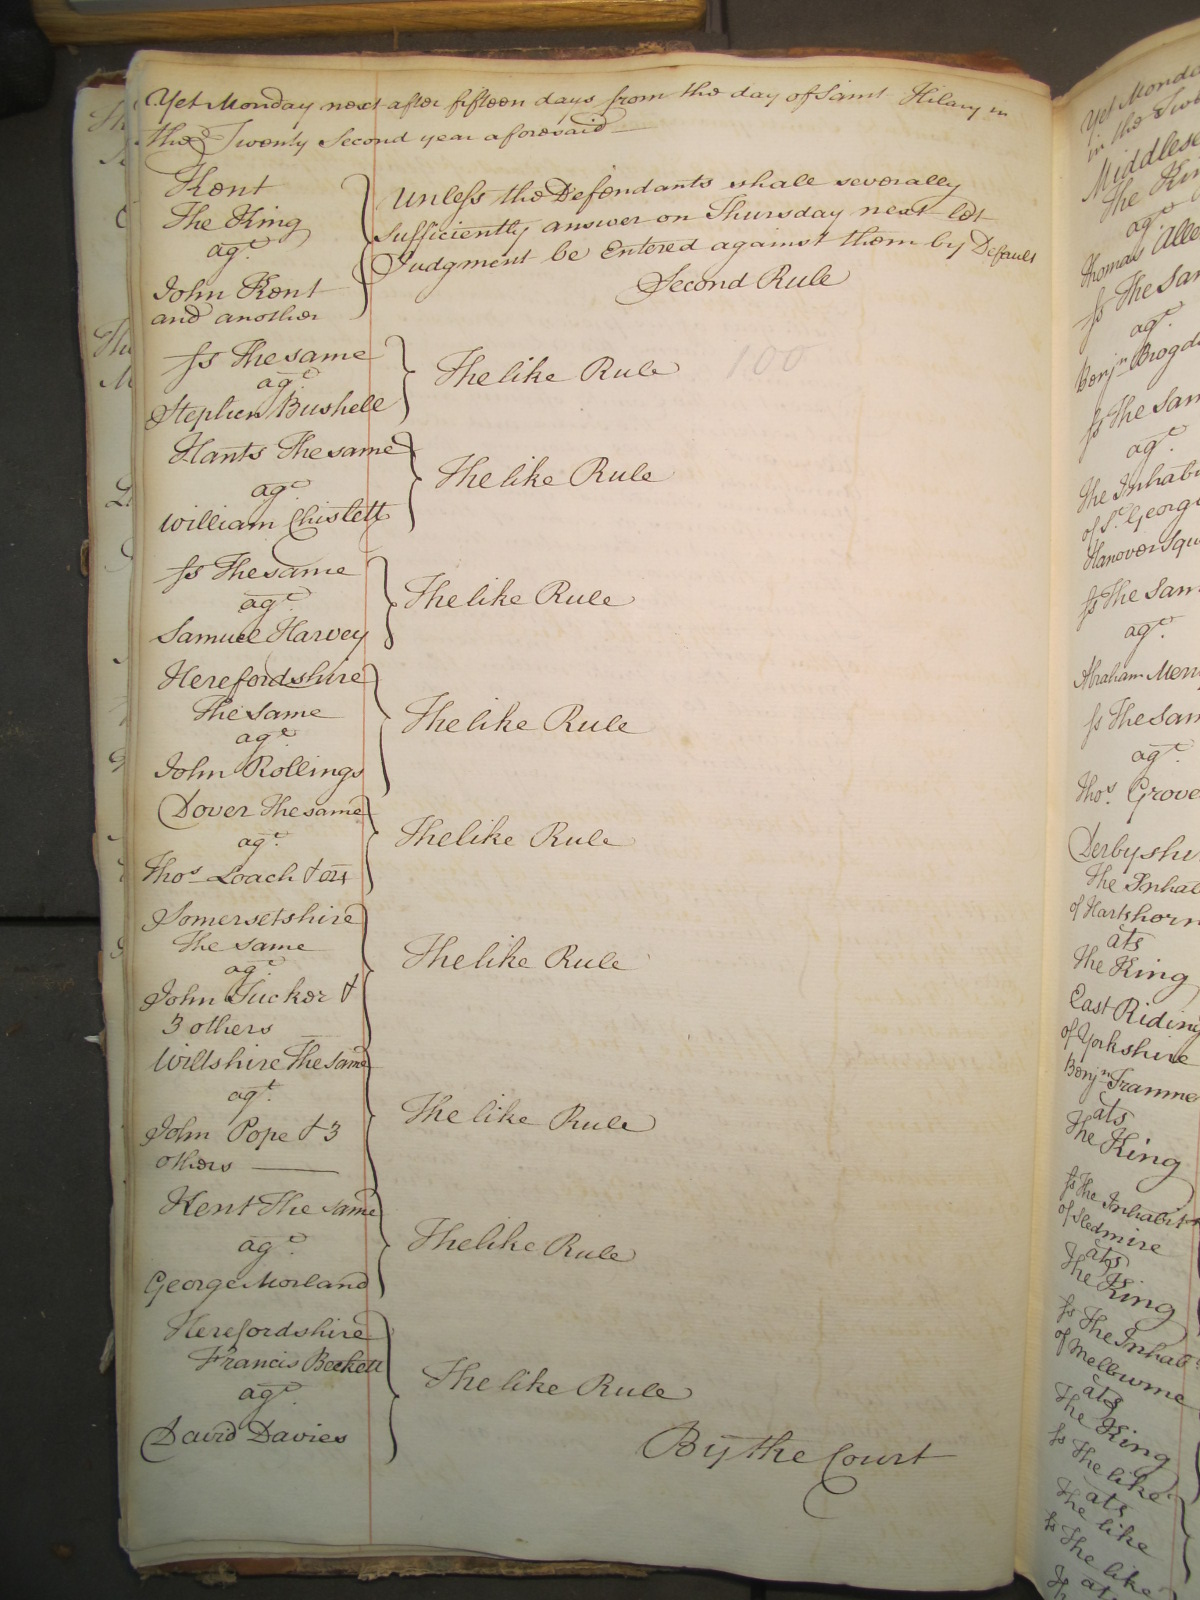 Yet Monday next after fifteen days from the day of Saint Hilary in
the Twenty Second year aforesaid
Kent
The King
agt.
John Kent
and another
Unless the Defendants shall severally
sufficiently answer on Thursday next let
Judgment be Entered against them by Default
Second Rule
Ss The same
agt.
Stephen Bushell
The like Rule 100
Hants The same
agt.
William Chislett
The like Rule
Ss The same
agt.
Samuel Harvey
The like Rule
Herefordshire
The Same
agt.
John Rollings
The like Rule
Dover The same
agt.
Thos Loach & ors
The like Rule
Somersetshire
The same
agt.
John Tucker &
3 others
The like Rule
Wiltshire The Same
agt.
John Pope & 3
others
The like Rule
Kent The same
agt.
George Morland
The like Rule
Herefordshire
Francis Beckett
agt.
David Davies
The like Rule
By the Court
Yet Monda
in the Twe
Middlese
The Kin
agt.
Thomas Alle
Ss The Sam
agt.
Benjn Brogd
Ss The Sam
agt.
The Inhabi
of St. George
Hanover Squ
Ss The Sam
agt.
Abraham Men
Ss The Sam
agt.
Thos. Grove
Derbyshi
The Inhab
of Hartshorn
ats
The King
East Riding
of Yorkshire
Benjn Tranme
ats
The King
Ss The Inhabit
of Sledmire
ats
The King
Ss The Inhabt
of Melburne
ats
The King
Ss The like
ats
The like
Ss The like
ats